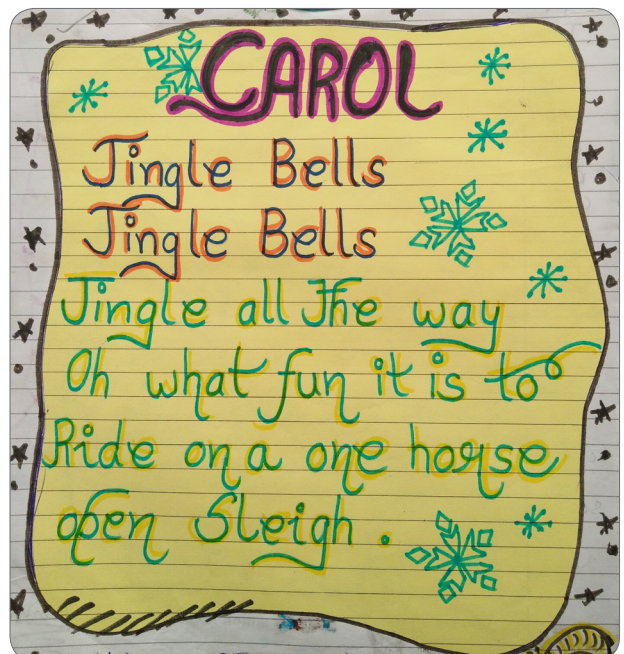 CAROL
Jingle Bells
Jingle Bells
Jingle all The way
Oh what fun it is to
Ride on a one horse
open Sleigh.